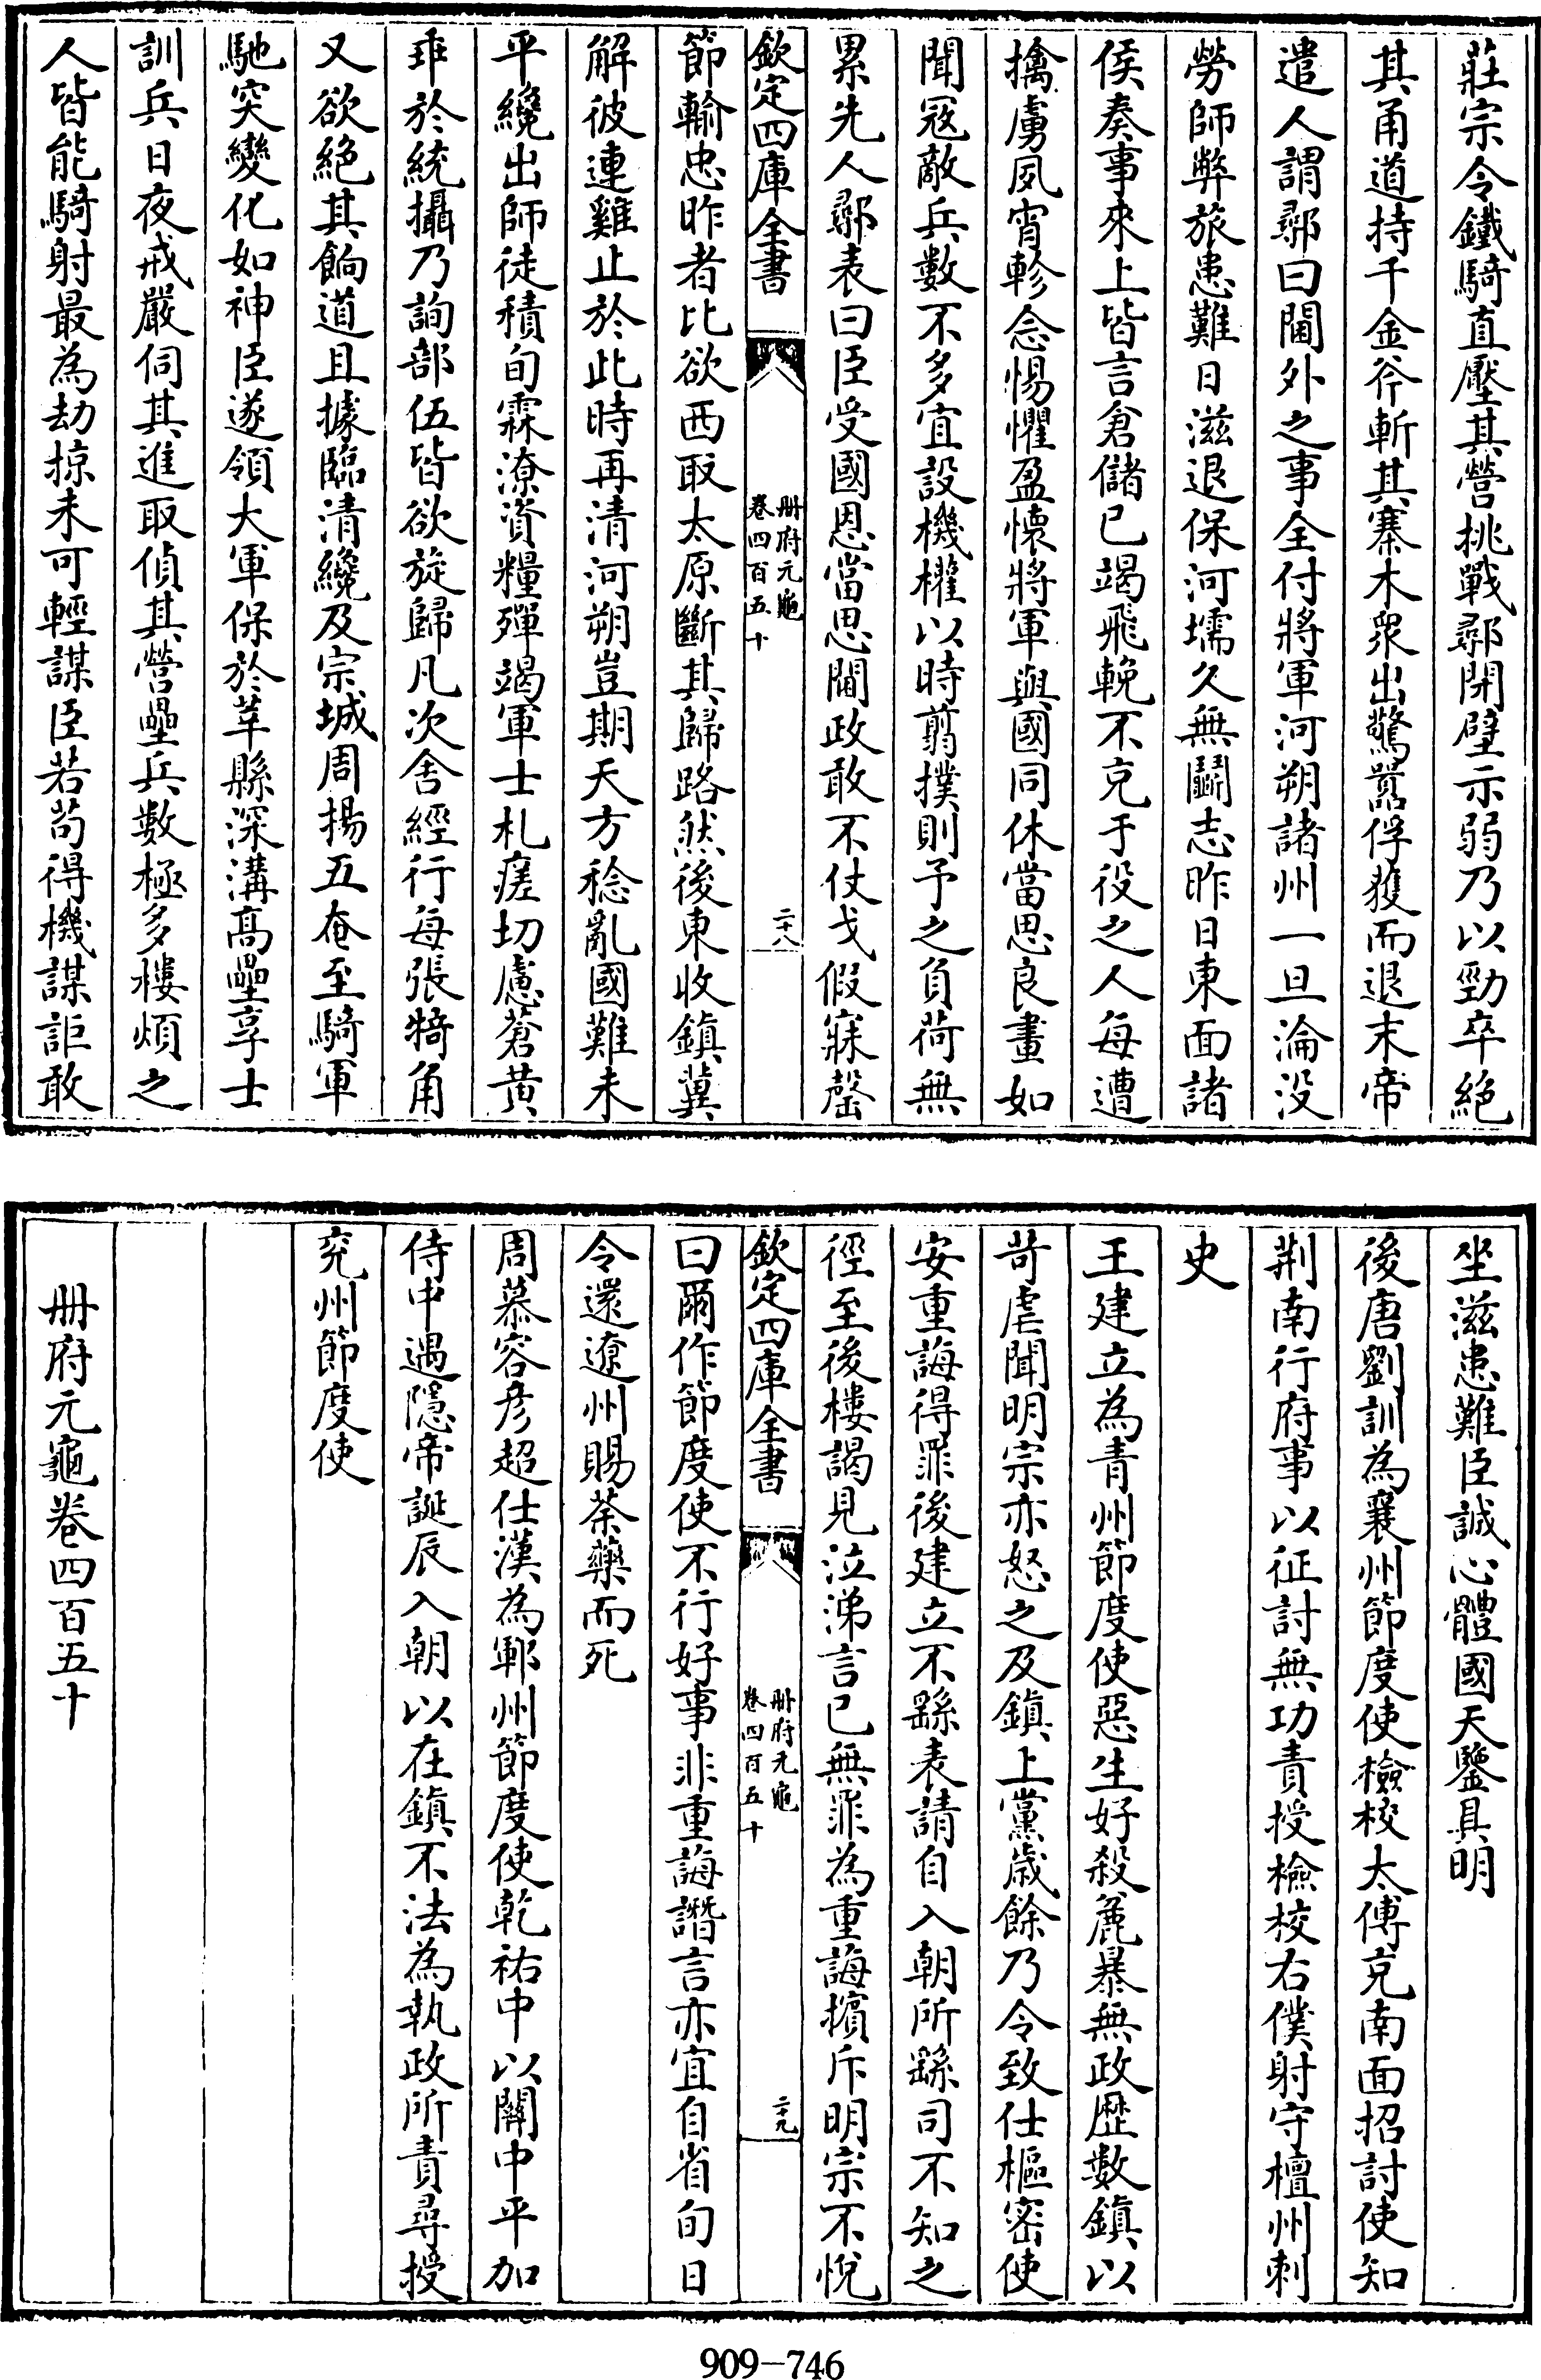 莊宗令鐵騎直壓其營挑戰鄩閉壁示弱乃以勁卒絕
其甬道持千金斧斬其寨木衆出驚囂俘獲而退末帝
遣人謂鄩曰閫外之事全付將軍河朔諸州一旦淪没
勞師弊旅患難日滋退保河壖久無鬭志昨日東面諸
侯奏事來上皆言倉儲已竭飛輓不克于役之人每遭
擒虜夙宵軫念惕懼盈懷將軍與國同休當思良畫如
聞寇敵兵數不多宜設機權以時翦撲則予之負荷無
累先人鄩表曰臣受國恩當思閫政敢不仗戈假寐罄
欽定四庫全書
册府元龜
卷四百五十
二十八
節輸忠昨者比欲西取太原斷其歸路然後東收鎮冀
解彼連雞止於此時再清河朔豈期天方稔亂國難未
平纔出師徒積旬霖潦資糧殫竭軍士札瘥切慮蒼黄
乖於統攝乃詢部伍皆欲旋歸凡次舍經行每張犄角
又欲絕其餉道且據臨清纔及宗城周揚五奄至騎軍
馳突變化如神臣遂領大軍保於莘縣深溝高壘享士
訓兵日夜戒嚴伺其進取偵其營壘兵數極多樓煩之
人皆能騎射最為劫掠未可輕謀臣若苟得機謀詎敢
坐滋患難臣誠心體國天鑒具明
後唐劉訓為襄州節度使檢校太傅充南面招討使知
荆南行府事以征討無功責授檢校右僕射守檀州刺
史
王建立為青州節度使惡生好殺麄暴無政歴數鎮以
苛虐聞明宗亦怒之及鎮上黨歲餘乃令致仕樞密使
安重誨得罪後建立不繇表請自入朝所繇司不知之
徑至後樓謁見泣涕言已無罪為重誨擯斥明宗不悅
欽定四庫全書
册府元龜
卷四百五十
二十九
曰爾作節度使不行好事非重誨譖言亦宜自省旬日
令還遼州賜茶藥而死
周慕容彦超仕漢為鄆州節度使乾祐中以關中平加
侍中遇隱帝誕辰入朝以在鎮不法為執政所責尋授
兖州節度使
册府元龜卷四百五十
909-746